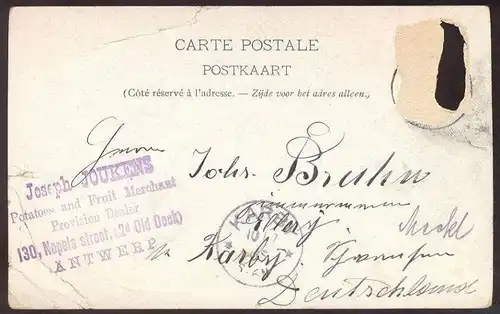 CARTE POSTALE
POSTKAART
(Côté réservé à l'adresse. — Zijde voor het adres alleen.)
Herrn
Johs. Bruhn
Joseph JOUKENS
Potatoes and Fruit Merchant
Provision Dealer
130, Napels street, (2d Old Dock)
ANTWERP
Karby
Deutschland